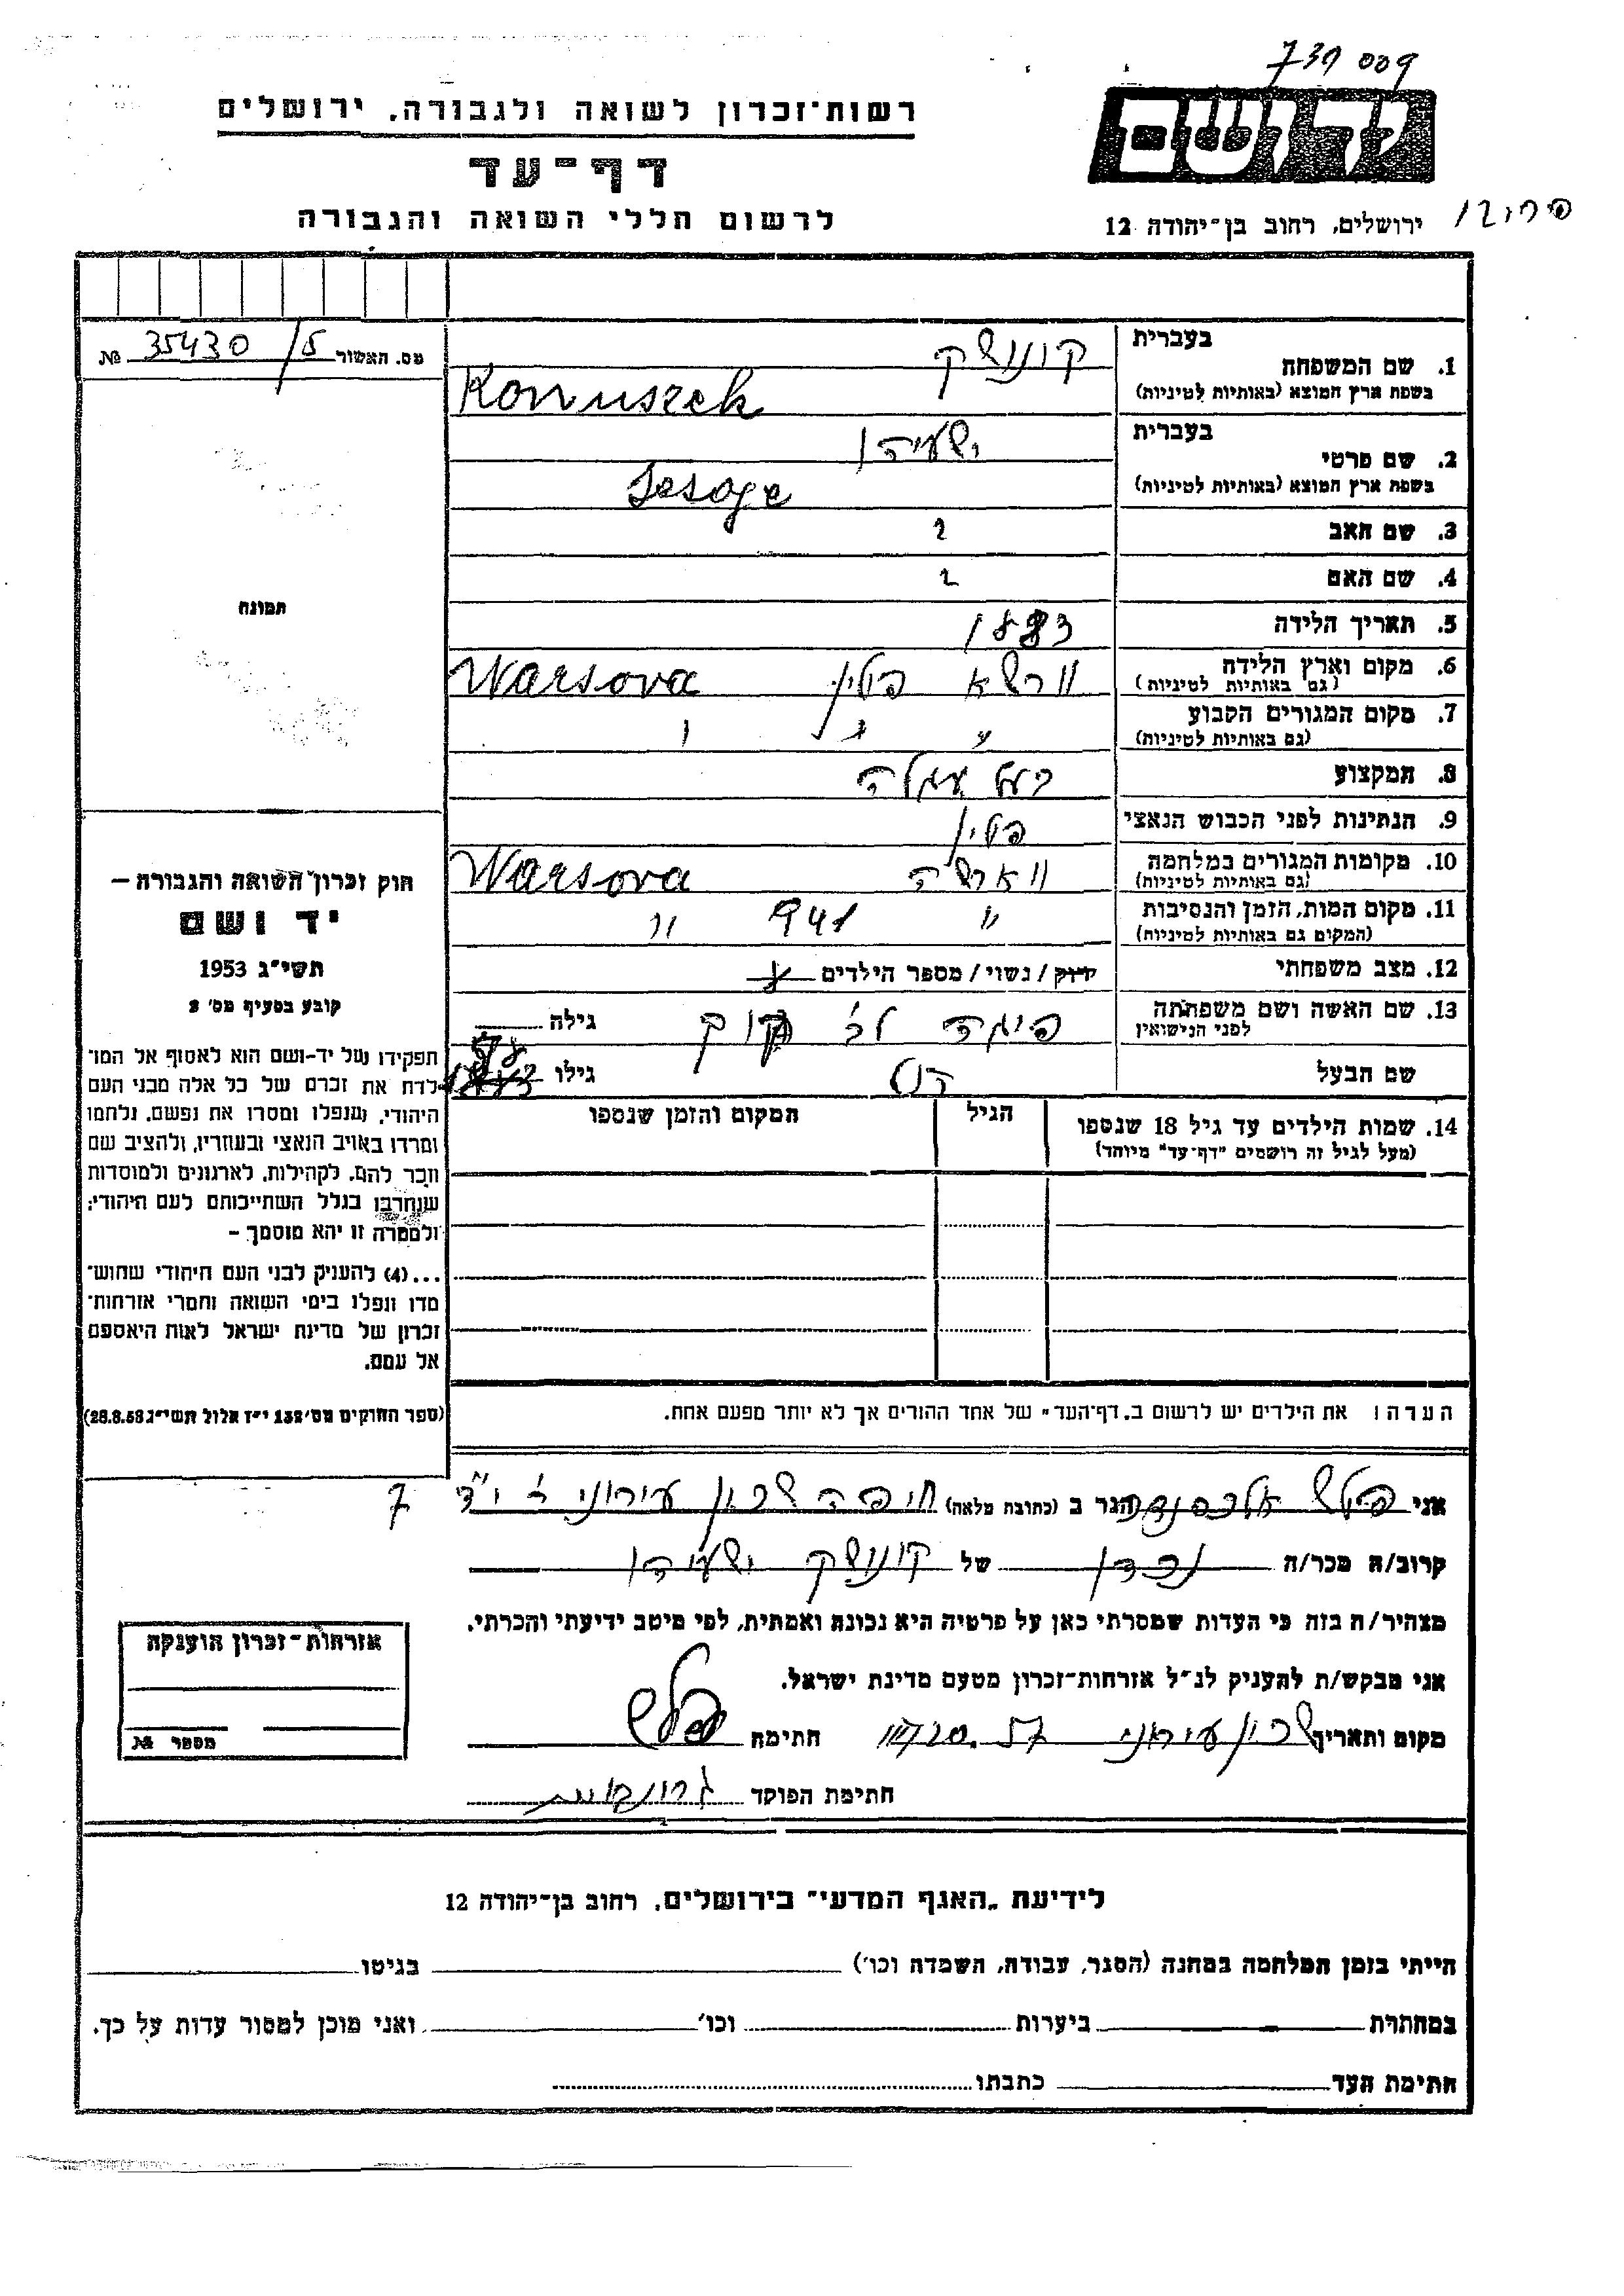 739 009
רשות-זכרון לשואה ולגבורה, ירושלים
דף-עד
לרשום חללי השואה והגבורה
ידושם
ירושלים, רחוב בן-יהודה 12
מס. האשור 35430/5 №
בעברית
1. שם המשפחה קונושק
בשפת ארץ המוצא (באותיות לטיניות) Konuszek
בעברית
2. שם פרטי ישעיהו
בשפת ארץ המוצא (באותיות לטיניות)
3. שם האב
4. שם האם
5. תאריך הלידה 1883
6. מקום וארץ הלידה וורשא פולין Warsova
(גם באותיות לטיניות)
7. מקום המגורים הקבוע
(גם באותיות לטיניות)
8. המקצוע בעל עגלה
9. הנתינות לפני הכבוש הנאצי פולין
10. מקומות המגורים במלחמה ווארשה Warsova
(גם באותיות לטיניות)
11. מקום המות, הזמן והנסיבות " 941 "
(המקום גם באותיות לטיניות)
12. מצב משפחתי רווק / נשוי / מספר הילדים
13. שם האשה ושם משפחתה
לפני הנישואין
גילה
שם הבעל
גילו
14. שמות הילדים עד גיל 18 שנספו
(מעל לגיל זה רושמים "דף-עד" מיוחד)
הגיל
המקום והזמן שנספו
הערה: את הילדים יש לרשום ב„דף-העד" של אחד ההורים אך לא יותר מפעם אחת.
תמונה
חוק זכרון השואה והגבורה –
יד ושם
תשי"ג 1953
קובע בסעיף מס' 2
תפקידו של יד-ושם הוא לאסוף אל המו-
לדת את זכרם של כל אלה מבני העם
היהודי, שנפלו ומסרו את נפשם, נלחמו
ומרדו באויב הנאצי ובעוזריו, ולהציב שם
וזכר להם, לקהילות, לארגונים ולמוסדות
שנחרבו בגלל השתייכותם לעם היהודי;
ולמטרה זו יהא מוסמך –
...(4) להעניק לבני העם היהודי שהוש-
מדו ונפלו בימי השואה והמרי אזרחות-
זכרון של מדינת ישראל לאות היאספם
אל עמם.
(ספר החוקים מס' 132 י"ז אלול תשי"ג 28.8.53)
אני פלש אלכסנדר הגר ב (כתובת מלאה) חיפה שכון עירוני
קרוב/ה מכר/ה נכדו של קונושק ישעיהו
מצהיר/ה בזה כי העדות שמסרתי כאן על פרטיה היא נכונה ואמתית, לפי מיטב ידיעתי והכרתי.
אני מבקש/ת להעניק לנ"ל אזרחות-זכרון מטעם מדינת ישראל.
מקום ותאריך שכון עירוני 57 חתימה פלש
חתימת הפוקד
אזרחות-זכרון הוענקה
מספר №
לידיעת „האגף המדעי" בירושלים, רחוב בן-יהודה 12
הייתי בזמן המלחמה במחנה (הסגר, עבודה, השמדה וכו') בגיטו
במחתרת ביערות וכו' ואני מוכן למסור עדות על כך.
חתימת העד כתבתו